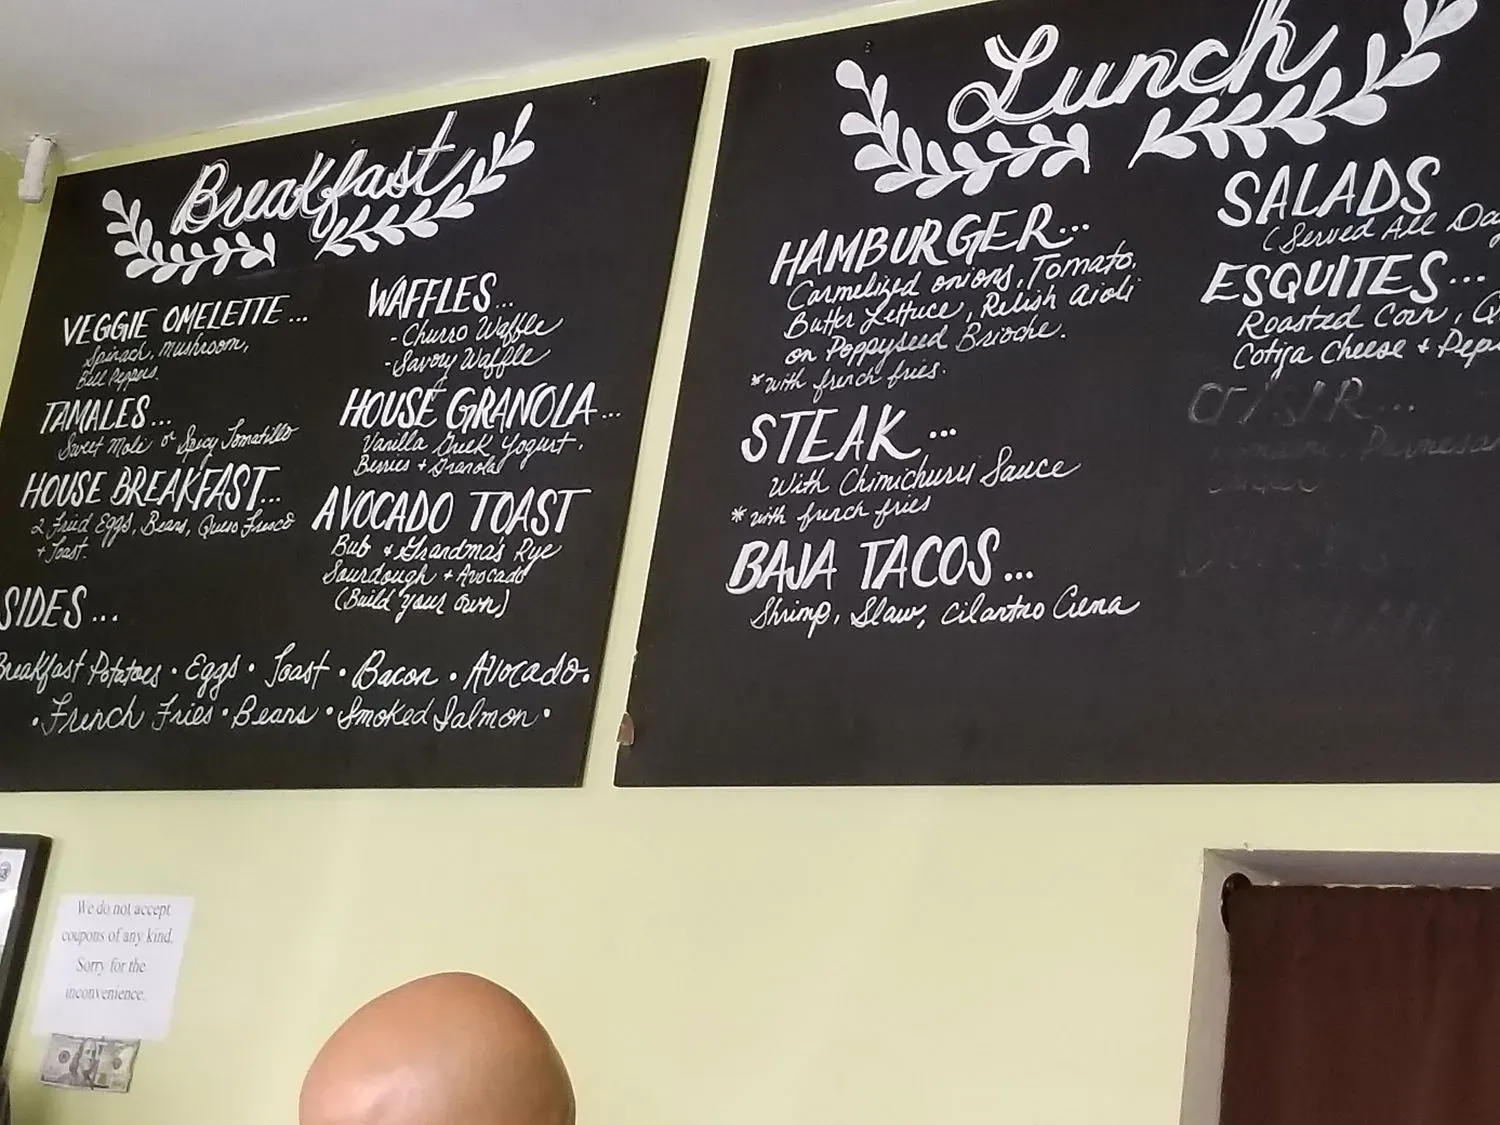 Breakfast
VEGGIE OMELETTE...
Spinach, mushroom,
Bell Peppers.
TAMALES...
Sweet Mole or Spicy Tomatillo
HOUSE BREAKFAST...
2 Fried Eggs, Beans, Queso Fresco
+ Toast.
WAFFLES...
- Churro Waffle
- Savory Waffle
HOUSE GRANOLA...
Vanilla Greek Yogurt,
Berries + Granola
AVOCADO TOAST
Bub & Grandma's Rye
Sourdough + Avocado
(Build your own)
SIDES...
Breakfast Potatoes • Eggs • Toast • Bacon • Avocado.
• French Fries • Beans • Smoked Salmon •
Lunch
HAMBURGER...
Carmelized onions, Tomato,
Butter Lettuce, Relish Aioli
on Poppyseed Brioche.
* with french fries.
STEAK...
With Chimichurri Sauce
* with french fries
BAJA TACOS...
Shrimp, Slaw, Cilantro Crema
SALADS
(Served All Day
ESQUITES...
Roasted Corn,
Cotija Cheese +
We do not accept
coupons of any kind.
Sorry for the
inconvenience.